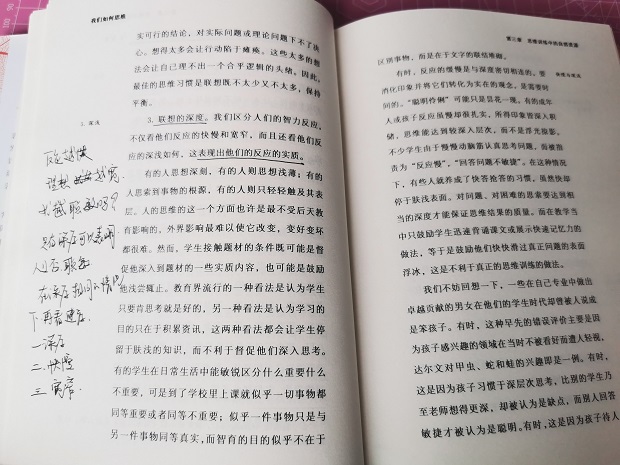 我们如何思维
实可行的结论，对实际问题或理论问题下不了决
心。想得太多会让行动陷于瘫痪，这些太多的想
法会让自己理不出一个合乎逻辑的头绪。因此，
最佳的思维习惯是联想既不太少又不太多，保持
平衡。
3. 深浅
3. 联想的深度。我们区分人们的智力反应，
不仅看他们反应的快慢和宽窄，而且还看他们反
应的深浅如何，这表现出他们的反应的实质。
有的人思想深刻，有的人则思想浅薄；有的
人思索到事物的根源，有的人则只轻轻触及其表
层。人的思维的这一个方面也许是最不受后天教
育影响的。外界影响最难以使它改变，变好变坏
都很难。然而，学生接触题材的条件既可能是督
促他深入到题材的一些实质内容，也可能是鼓励
他浅尝辄止。教育界流行的一种看法是认为学生
只要肯思考就是好的，另一种看法是认为学习的
目的只在于积累资讯，这两种看法都会让学生停
留于肤浅的知识，而不利于督促他们深入思考。
有的学生在日常生活中能敏锐区分什么重要什么
不重要，可是到了学校里上课就似乎一切事物都
同等重要或者同等不重要；似乎一件事物只是与
另一件事物同等真实，而智有的目的似乎不在于
反应越快
联想
越宽
只有深度可以表明
人
在深度相同的情况
下再看速度。
一深度
二.快慢
三.宽窄
第三章 思维训练中的自然资源
区别事物，而是在于文字的联结堆砌。
有时，反应的缓慢是与深度密切相连的。要
深度与深浅
消化印象并将它们转化为实在的观念，是需要时
间的。“聪明伶俐”可能只是昙花一现。有的成年
人或孩子反应虽缓却很扎实，所得印象皆深入积
储，思维能达到较深入层次，而不是浮光掠影。
不少学生由于慢慢动脑筋认真思考问题，而被指
责为“反应慢”，“回答问题不敏捷”。在这种情况
下，有些人就养成了快答抢答的习惯，虽然快却
停于肤浅表面。对问题、对困难的思索要达到相
当的深度才能保证思维结果的质量。而在教学当
中只鼓励学生迅速背诵课文或展示快速记忆力的
做法，等于是鼓励他们快快滑过真正问题的表面
浮冰，这是不利于真正的思维训练的做法。
我们不妨回想一下，一些在自己专业中做出
卓越贡献的男女在他们的学生时代却曾被人说成
是笨孩子。有时，这种早先的错误评价主要是因
为孩子感兴趣的领域在当时不被看好而遭人轻视，
达尔文对甲虫、蛇和蛙的兴趣即是一例。有时，
这是因为孩子习惯于深层次思考，比别的学生乃
至老师想得更深，却被认为是缺点，而别人回答
敏捷才被认为是聪明。有时，这是因为孩子待人